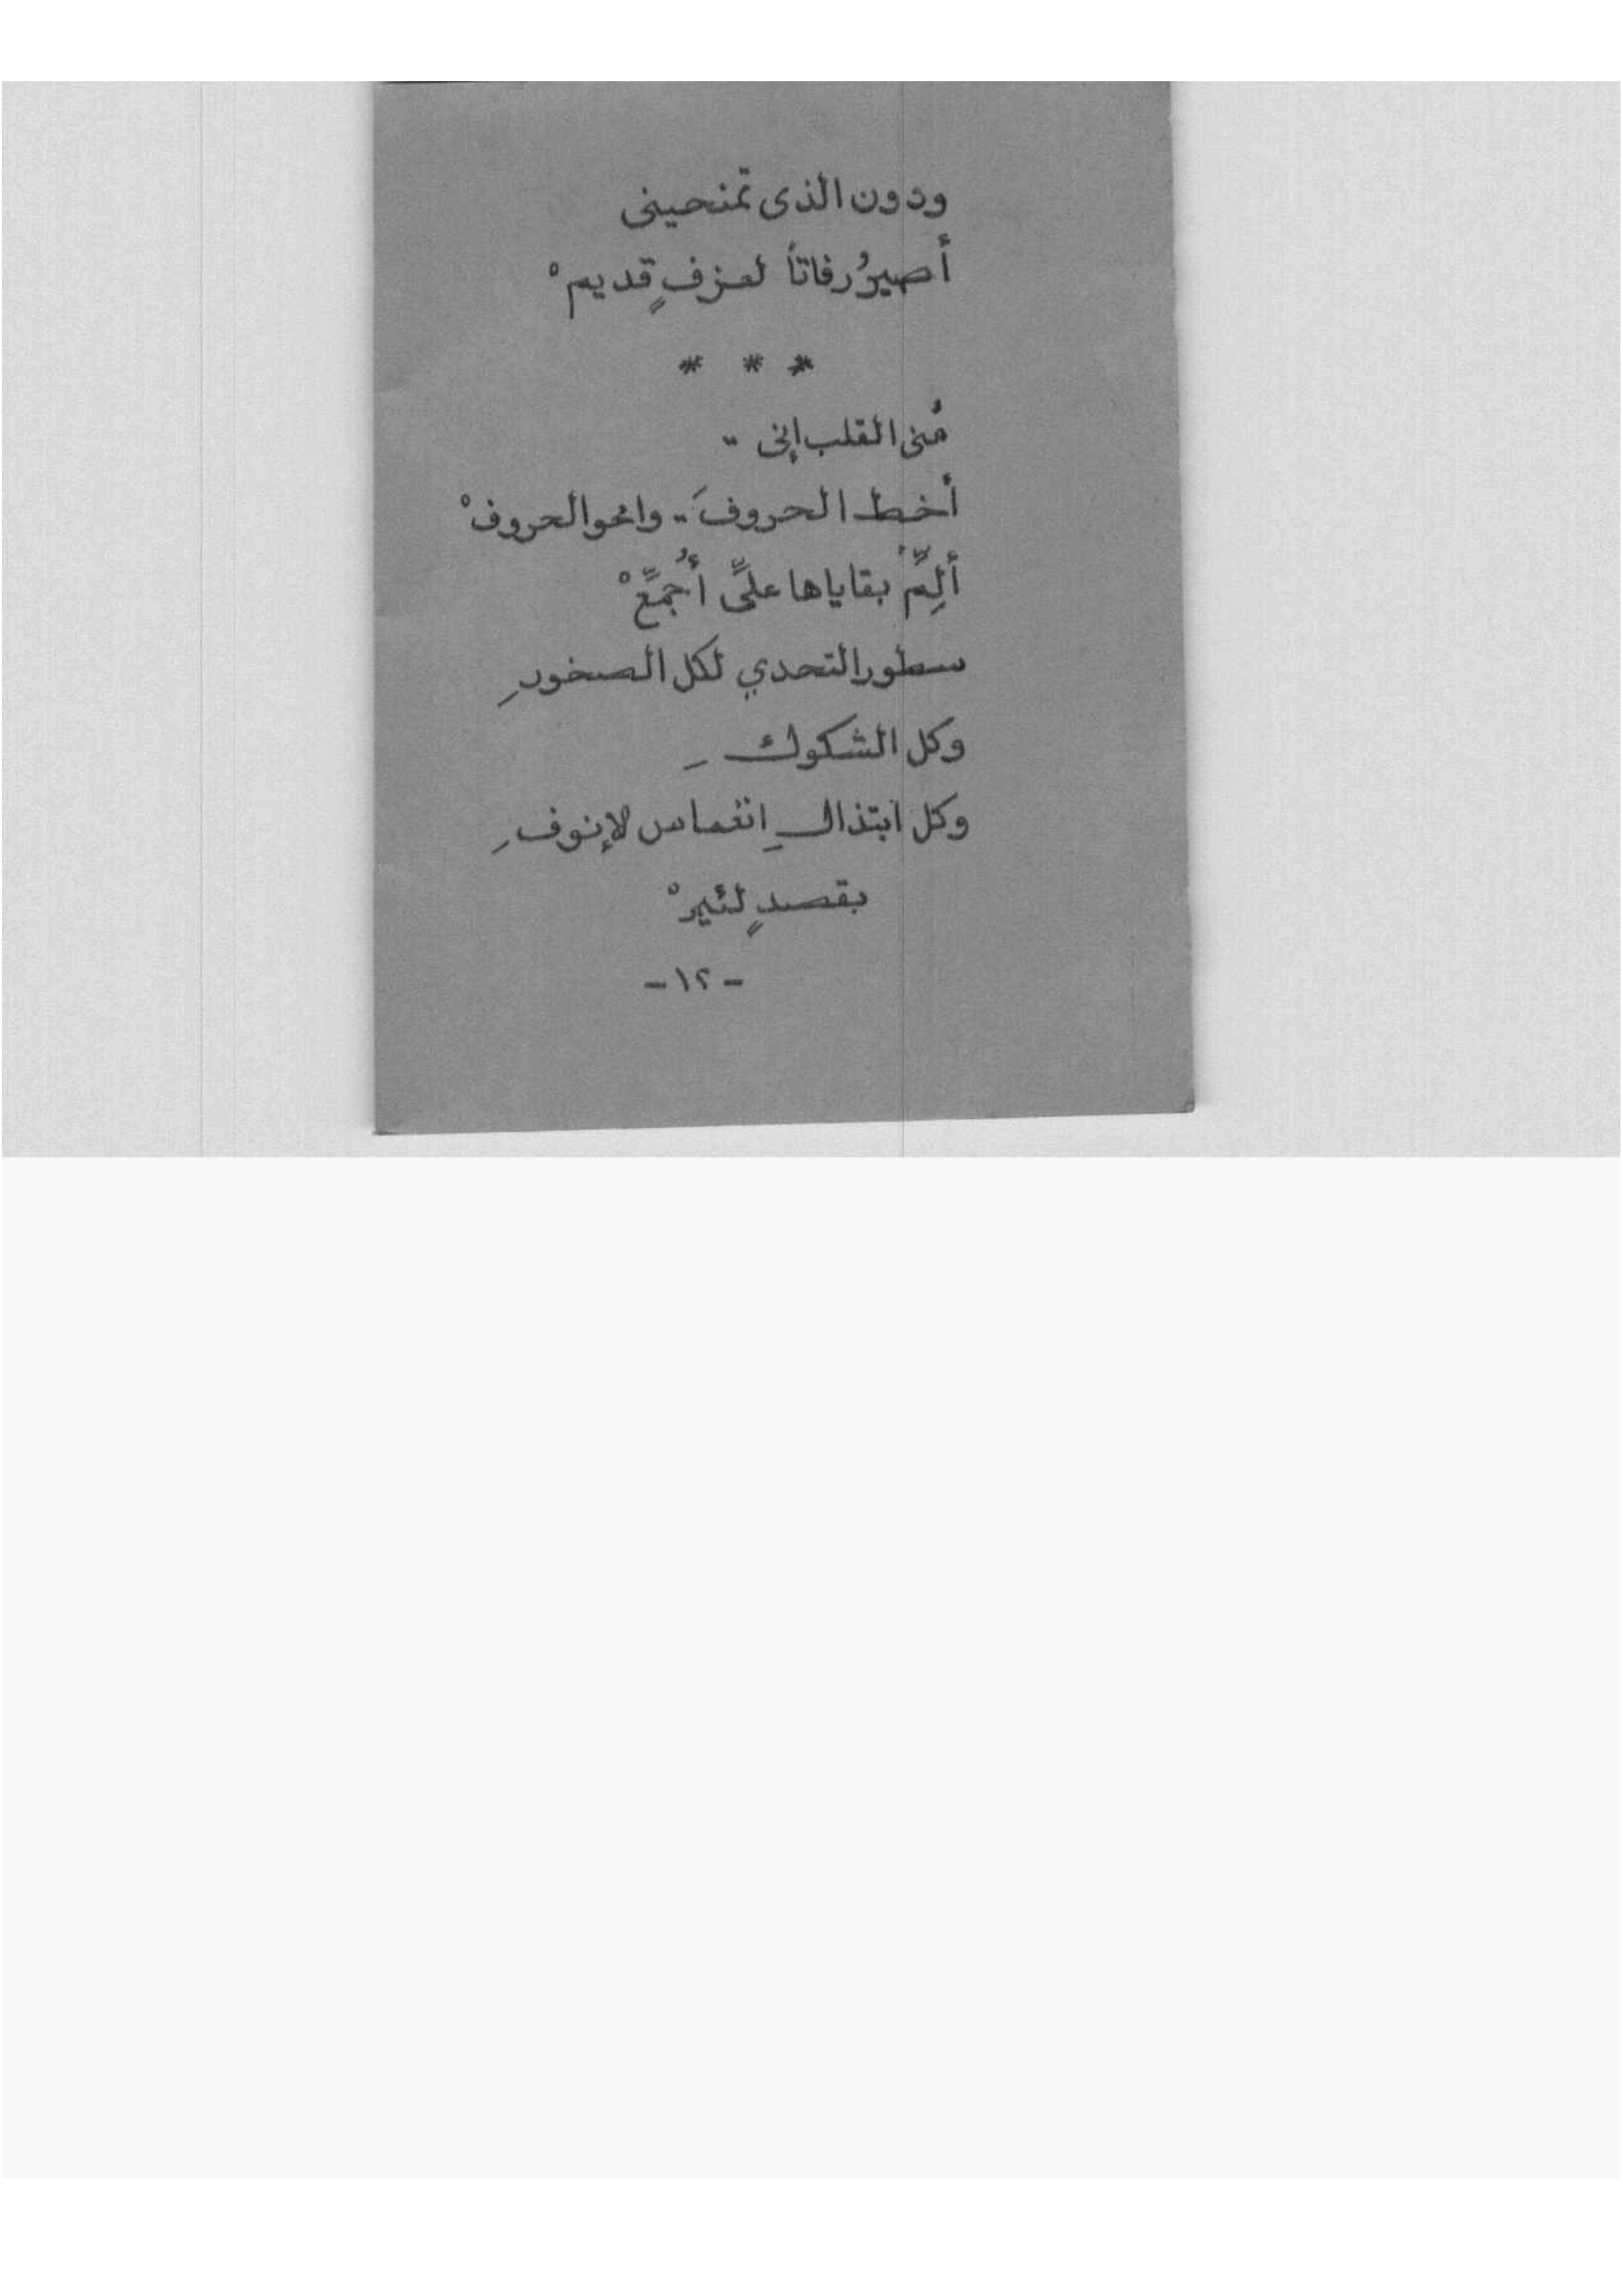 ودون الذى تمنحينى
أصيرُ رفاتاً لعزفٍ قديمْ
* * *
مُنى القلب إنى ..
أخط الحروفَ .. وامحو الحروفْ
ألِمِّ بقاياها علىِّ أُجمِّعْ
سطور التحدي لكل الصخورِ
وكل الشكوكِ
وكل ابتذالِ انغماس لإنوفِ
بقصدٍ لئيمْ
- ١٢ -